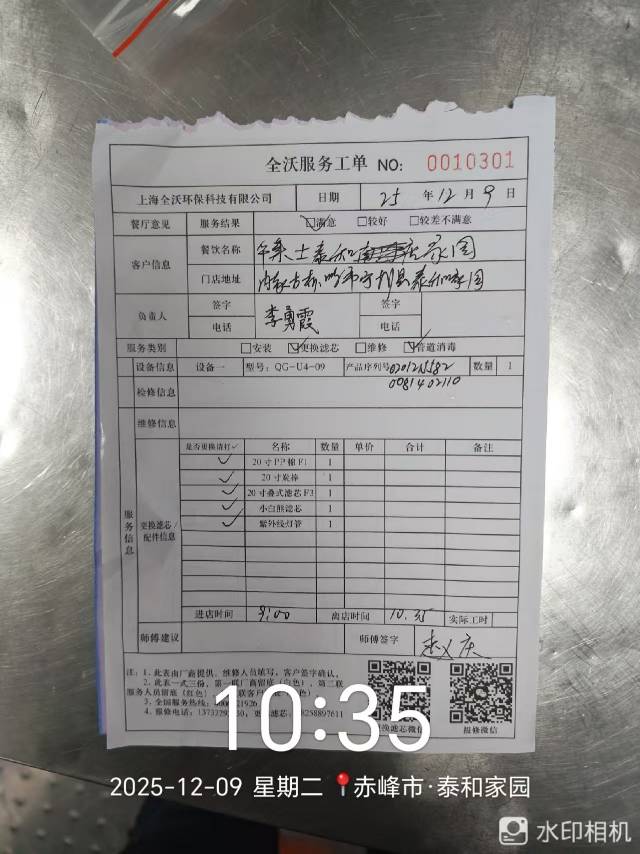 全沃服务工单 NO: 0010301
上海全沃环保科技有限公司 日期 25 年 12 月 9 日
餐厅意见 服务结果 ☑满意 □较好 □较差不满意
客户信息 餐饮名称 士泰和 家园
门店地址 内蒙古赤 市宁 县泰和家园
负责人 签字 李勇霞 签字
电话 电话
服务类别 □安装 ☑更换滤芯 □维修 ☑管道消毒
设备信息 设备一 型号: QG-U4-09 产品序列号 数量 1
0081402110
检修信息
维修信息
服务信息 更换滤芯/配件信息
是否更换请打✓ 名称 数量 单价 合计 备注
✓ 20寸PP棉F1 1
✓ 20寸炭棒 1
✓ 20寸叠式滤芯F3 1
✓ 小白熊滤芯 1
✓ 紫外线灯管 1
进店时间 9:00 离店时间 10.35 实际工时
师傅建议 师傅签字
注: 1、此表由厂商提供、维修人员填写, 客户签字确认。
2、此表一式三份, 第一联厂商留底(白色), 第二联
服务人员留底(红色)
3、全国服务热线:
4、报修电话:
更换滤芯微信 报修微信
10:35
2025-12-09 星期二 赤峰市·泰和家园
水印相机